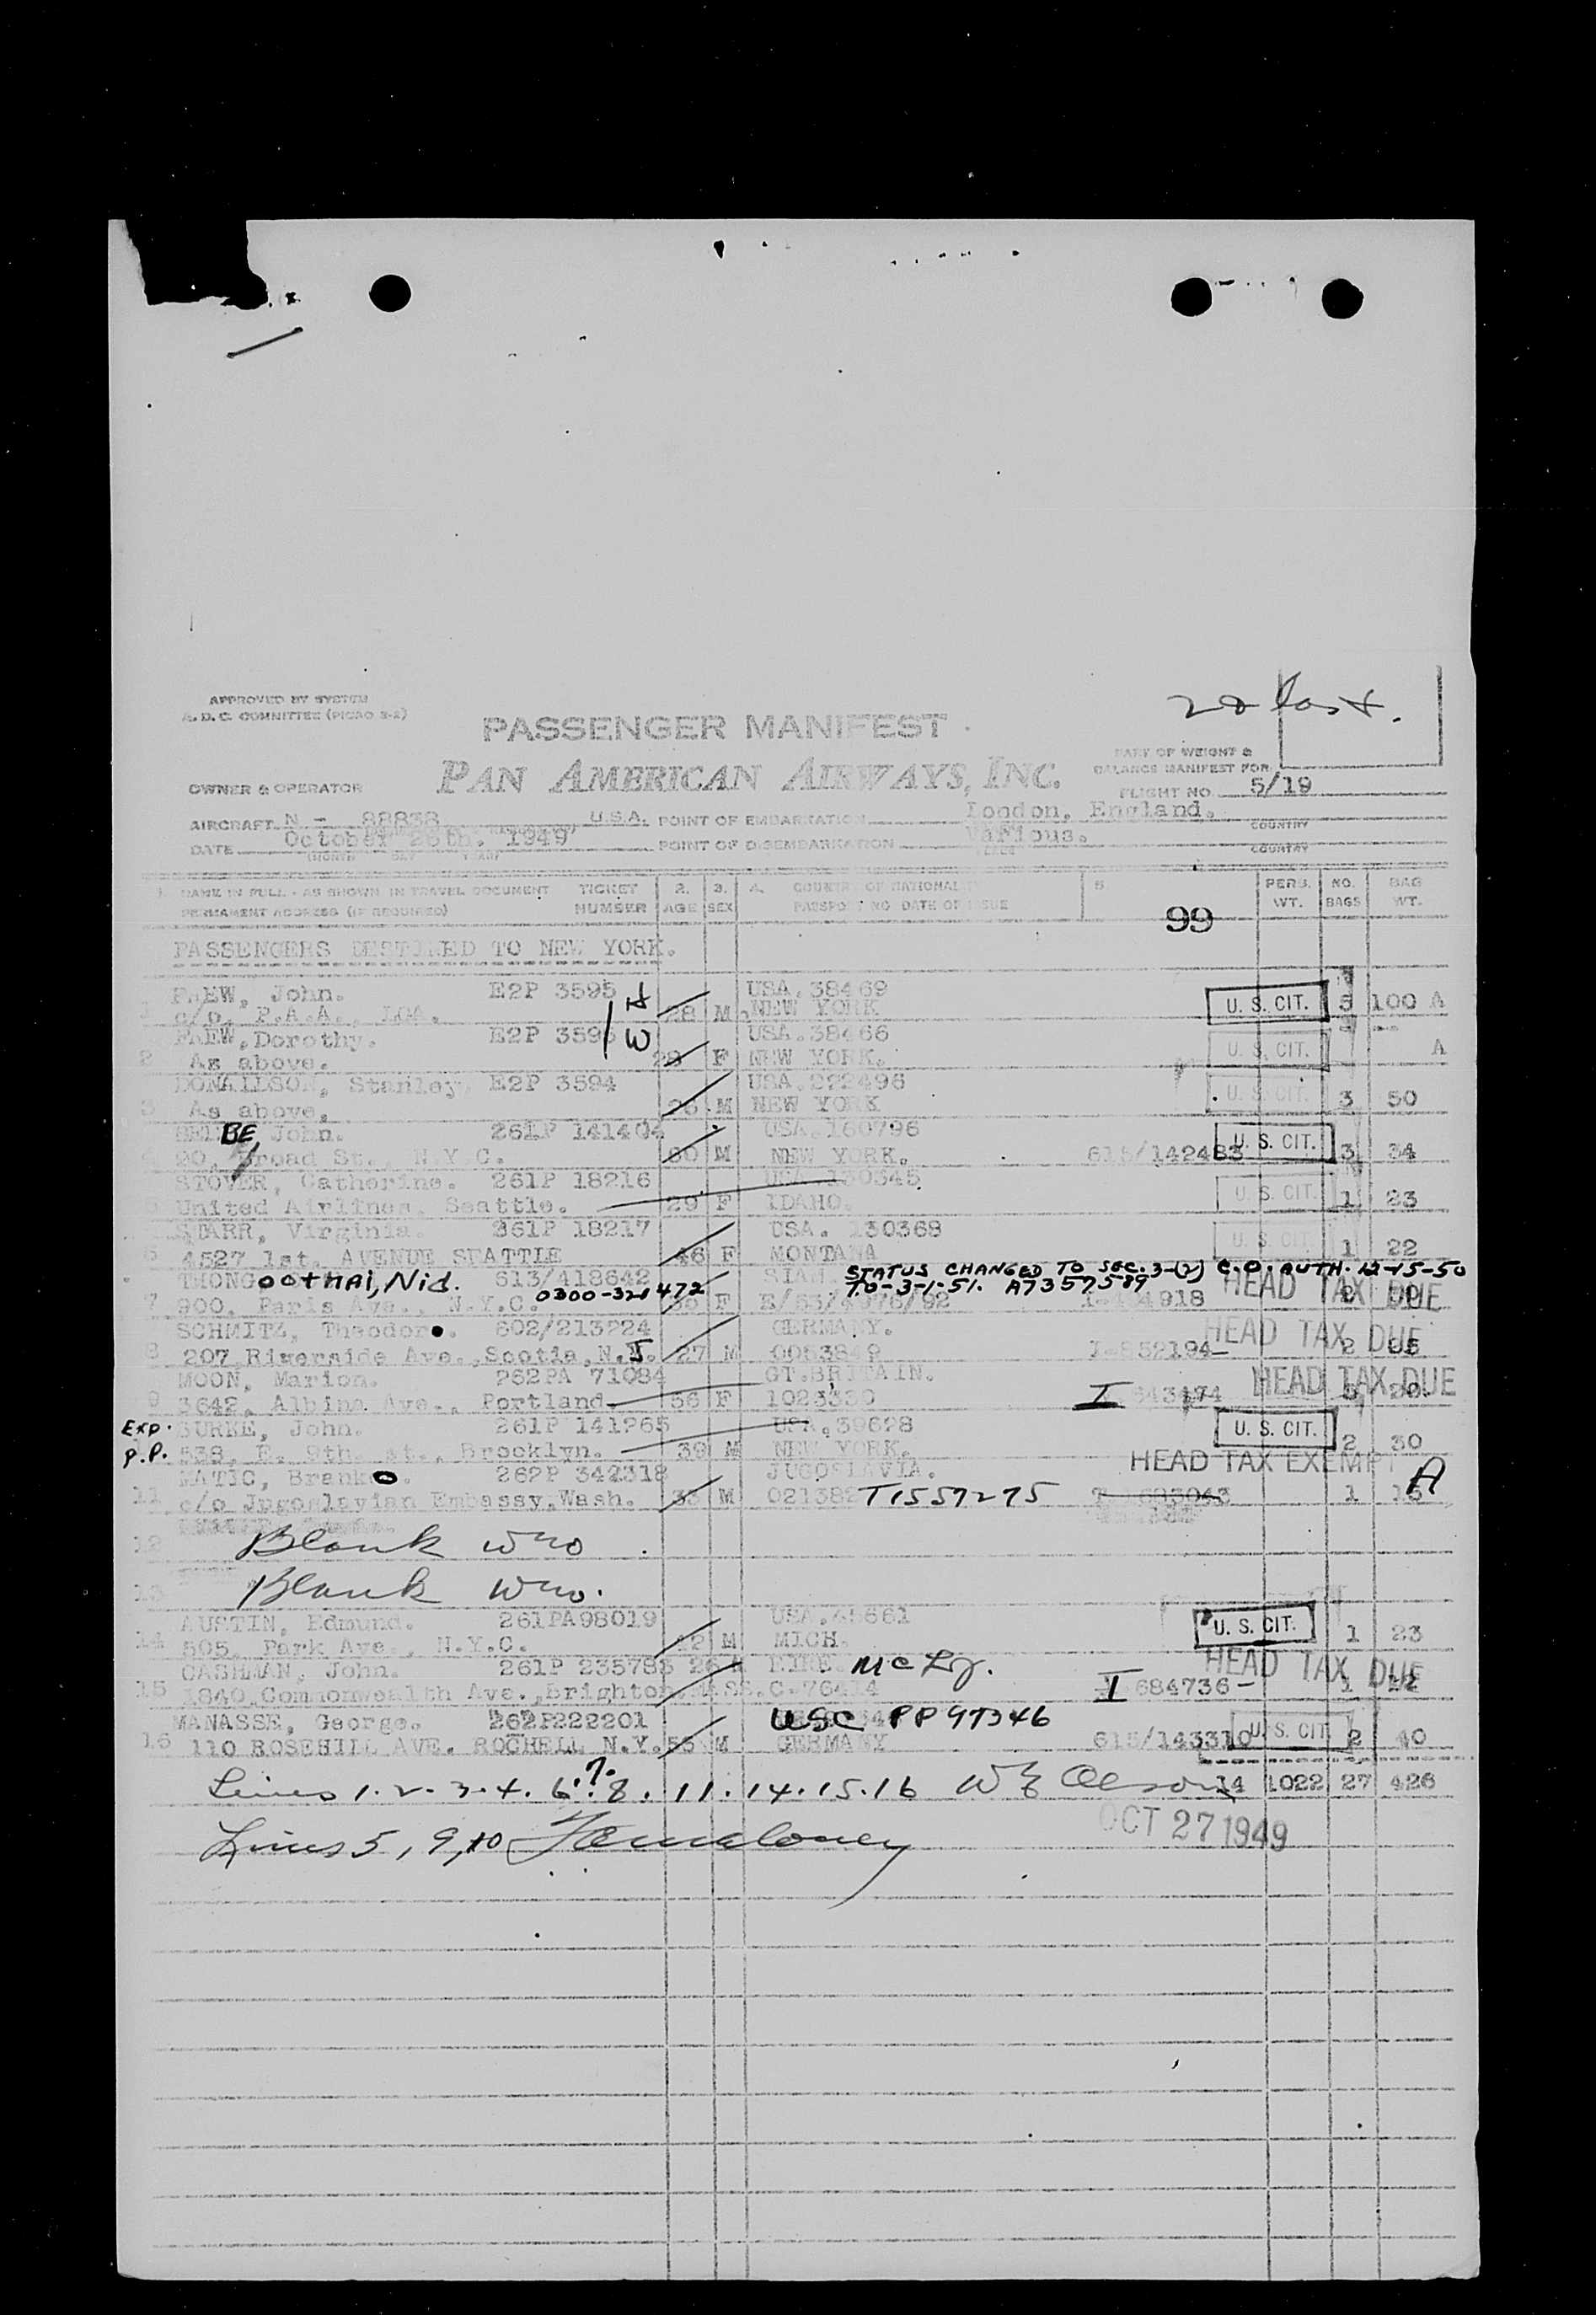 20 last.
APPROVED BY SYSTEM
A. D. C. COMMITTEE (PICAO 3-2)
PASSENGER MANIFEST
PART OF WEIGHT &
BALANCE MANIFEST FOR
OWNER & OPERATOR
PAN AMERICAN AIRWAYS, INC.
FLIGHT NO. 5/19
AIRCRAFT N - 88838 U.S.A. POINT OF EMBARKATION London, England.
COUNTRY
DATE October 26th. 1949 POINT OF DISEMBARKATION Various.
COUNTRY
1. NAME IN FULL - AS SHOWN IN TRAVEL DOCUMENT TICKET 2. 3. 4. COUNTRY OF NATIONALITY 5 PERS. NO. BAG
PERMANENT ADDRESS (IF REQUIRED) NUMBER AGE SEX PASSPORT NO DATE OF ISSUE WT. BAGS WT.
99
PASSENGERS DESTINED TO NEW YORK.
John. E2P 3595 H USA.38469
1 c/o, P.A.A., LGA. 28 M NEW YORK U. S. CIT. 5 100 A
Dorothy. E2P 3595 W USA.38466
2 As above. 28 F NEW YORK. U. S. CIT. A
DONALDSON, Stanley E2P 3594 USA.222496
3 As above, 26 M NEW YORK U. S. CIT. 3 50
BE, John. 261P 141404 USA.160796
4 20, Broad St., N.Y.C. 60 M NEW YORK. 615/142483 U. S. CIT. 3 34
STOVER, Catherine. 261P 18216 USA 130345
5 United Airlines, Seattle. 29 F IDAHO. U. S. CIT. 1 23
STARR, Virginia. 261P 18217 USA. 130368
6 4527 1st. AVENUE SEATTLE 46 F MONTANA U. S. CIT. 1 22
THONGOOTHAI, Nid. 613/418642 SIAM. STATUS CHANGED TO SEC. 3-(2) C.O. AUTH. 12-15-50
0300-321472 TO-3-1-51. A7357589
7 900, Paris Ave., N.Y.C. F E/53/4976/92 HEAD TAX DUE
SCHMITZ, Theodore. 602/213224 GERMANY.
8 207, Riverside Ave., Scotia, N.J. 27 M 0053849 I-852194- HEAD TAX DUE 2
MOON, Marion. 262PA 71084 GT.BRITAIN.
9 3642, Albina Ave., Portland. 56 F 1023330 I 643474 HEAD TAX DUE
Exp. BURKE, John. 261P 141265 USA.39628
P.P. 538, E. 9th. st., Brooklyn. 39 M NEW YORK. U. S. CIT. 2 30
MATIC, Branko. 262P 342318 JUGOSLAVIA. HEAD TAX EXEMPT A
11 c/o Jugoslavian Embassy, Wash. 33 M 021382 T1557275 1 15
12 Blank WWO
13 Blank WWO.
AUSTIN, Edmund. 261PA98019 USA.45661
14 505, Park Ave., N.Y.C. M MICH. U. S. CIT. 1 23
CASHMAN, John. 261P 235785 26 M EIRE HEAD TAX DUE
15 1840, Commonwealth Ave., Brighton, MASS. C-76414 I 684736- 1
MANASSE, George. 262P222201 USC PP 97346
16 110 ROSEHILL AVE. ROCHELL N.Y. 55 M GERMANY 615/143310 U. S. CIT. 2 40
Lines 1.2.3.4.6.7.8.11.14.15.16 W E Olson 14 1022 27 426
OCT 27 1949
Lines 5, 9, 10